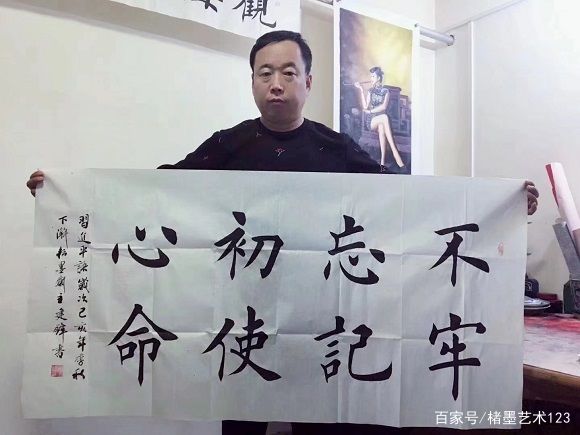 觀
不忘初心
牢記使命
習近平語歲次己亥年季秋
下澣松墨齋主建鋒書
百家号/楮墨艺术123